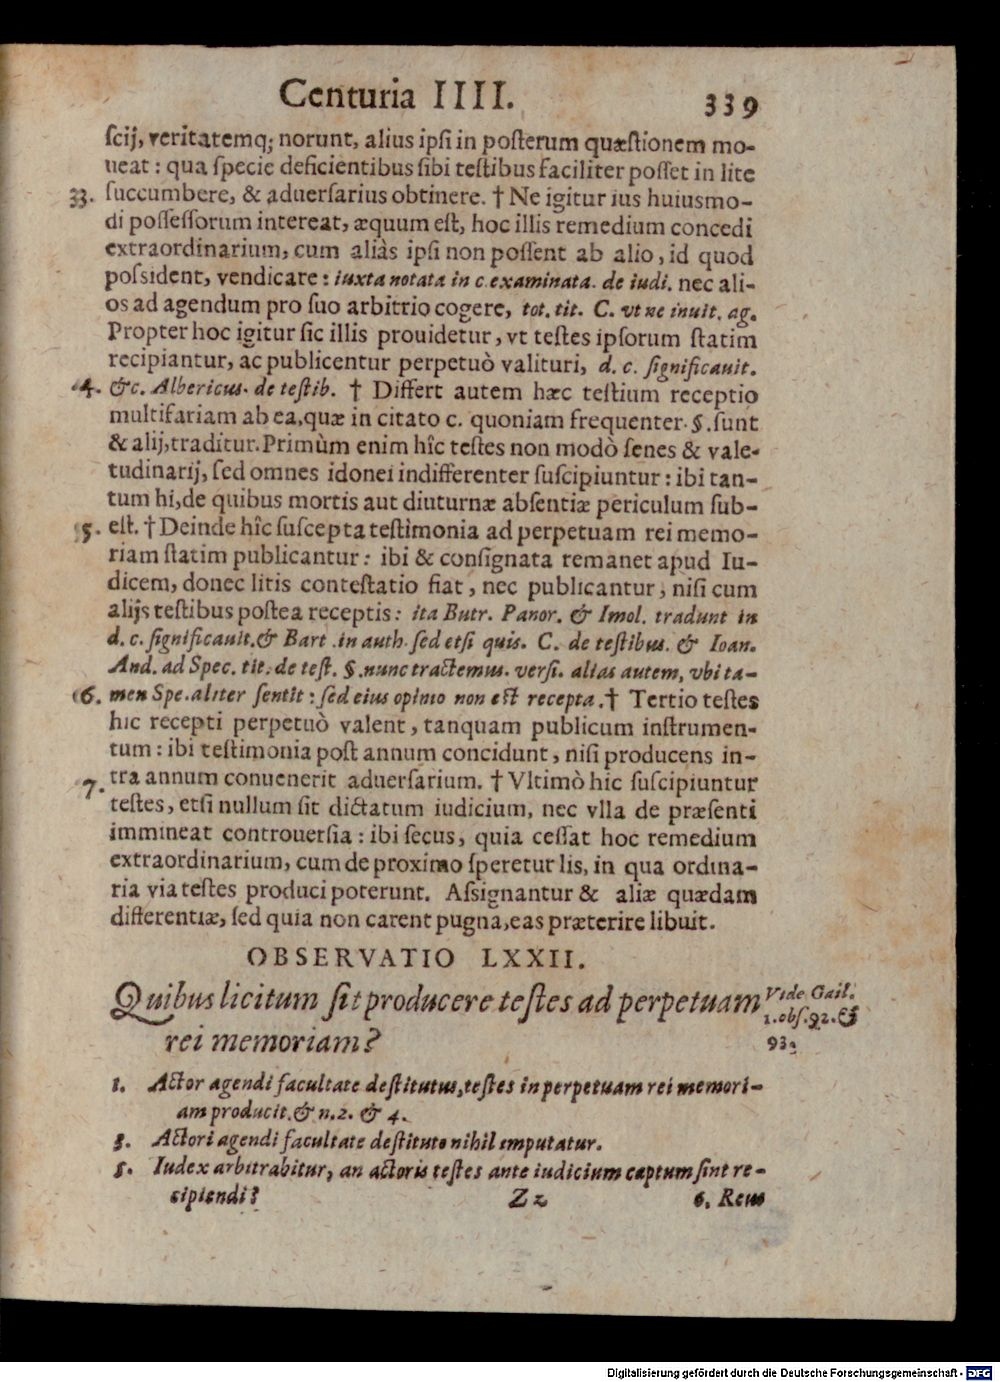 Centuria IIII. 339
scij, veritatemq; norunt, alius ipsi in posterum quæstionem mo-
ueat : qua specie deficientibus sibi testibus faciliter posset in lite
33. succumbere, & aduersarius obtinere. † Ne igitur ius huiusmo-
di possessorum intereat, æquum est, hoc illis remedium concedi
extraordinarium, cum aliàs ipsi non possent ab alio, id quod
possident, vendicare : iuxta notata in c. examinata. de iudi. nec ali-
os ad agendum pro suo arbitrio cogere, tot. tit. C. vt ne inuit. ag.
Propter hoc igitur sic illis prouidetur, vt testes ipsorum statim
recipiantur, ac publicentur perpetuò valituri, d. c. significauit.
4. &c. Albericus. de testib. † Differt autem hæc testium receptio
multifariam ab ea, quæ in citato c. quoniam frequenter. §. sunt
& alij, traditur. Primùm enim hîc testes non modò senes & vale-
tudinarij, sed omnes idonei indifferenter suscipiuntur : ibi tan-
tum hi, de quibus mortis aut diuturnæ absentiæ periculum sub-
5. est. † Deinde hîc suscepta testimonia ad perpetuam rei memo-
riam statim publicantur : ibi & consignata remanet apud Iu-
dicem, donec litis contestatio fiat, nec publicantur, nisi cum
alijs testibus postea receptis : ita Butr. Panor. & Imol. tradunt in
d. c. significauit. & Bart. in auth. sed etsi quis. C. de testibus. & Ioan.
And. ad Spec. tit. de test. §. nunc tractemus. versi. alias autem, vbi ta-
6. men Spe. aliter sentit : sed eius opinio non est recepta. † Tertio testes
hic recepti perpetuò valent, tanquam publicum instrumen-
tum : ibi testimonia post annum concidunt, nisi producens in-
7. tra annum conuenerit aduersarium. † Vltimò hic suscipiuntur
testes, etsi nullum sit dictatum iudicium, nec vlla de præsenti
immineat controuersia : ibi secus, quia cessat hoc remedium
extraordinarium, cum de proximo speretur lis, in qua ordina-
ria via testes produci poterunt. Assignantur & aliæ quædam
differentiæ, sed quia non carent pugna, eas præterire libuit.
OBSERVATIO LXXII.
Quibus licitum sit producere testes ad perpetuam
rei memoriam?
Vide Gail.
1. obs. 92. &
93.
1. Actor agendi facultate destitutus, testes in perpetuam rei memori-
am producit. & n. 2. & 4.
3. Actori agendi facultate destituto nihil imputatur.
5. Iudex arbitrabitur, an actoris testes ante iudicium captum sint re-
cipiendi?
Zz 6. Reus
Digitalisierung gefördert durch die Deutsche Forschungsgemeinschaft - DFG